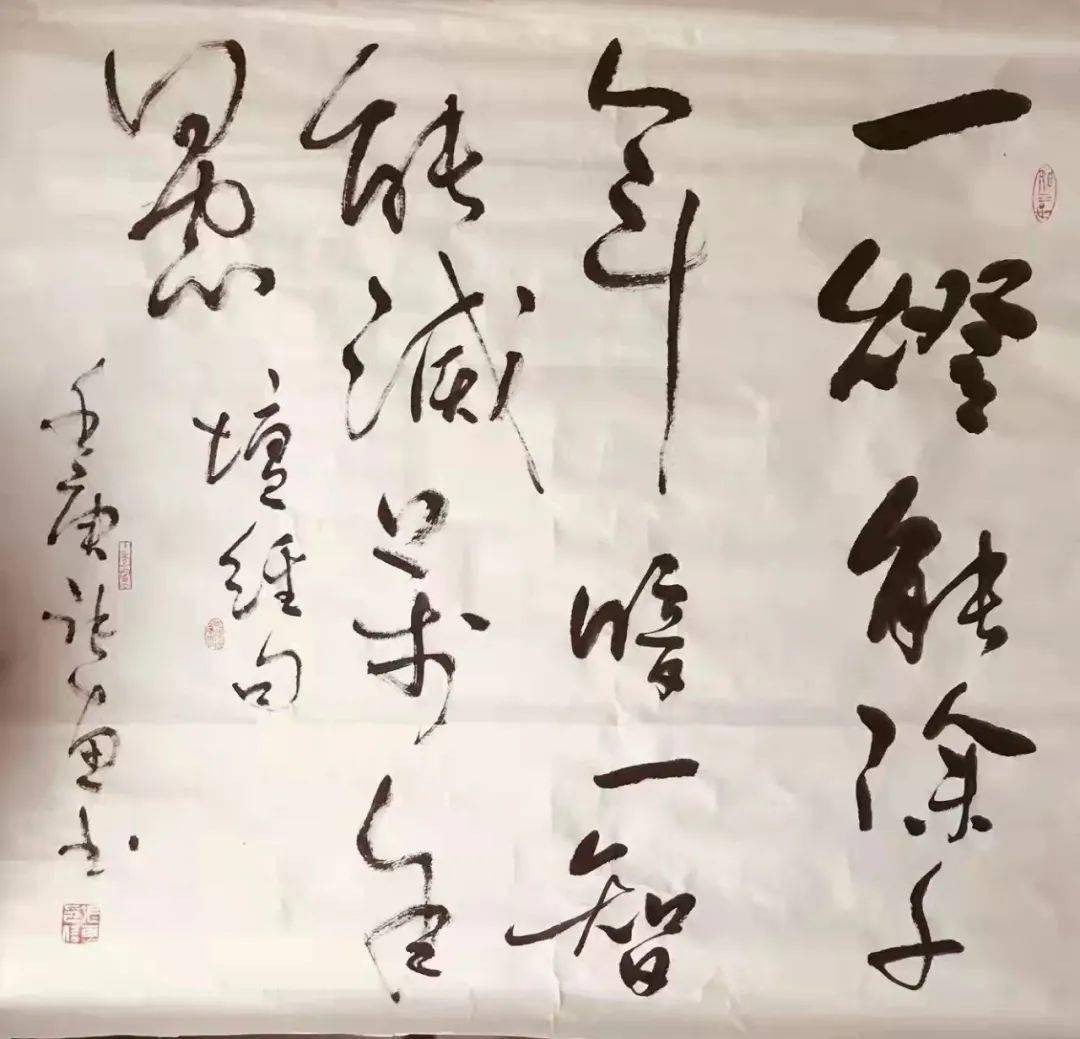 一燈能除千
年暗一智
能滅萬年
愚
壇經句
書